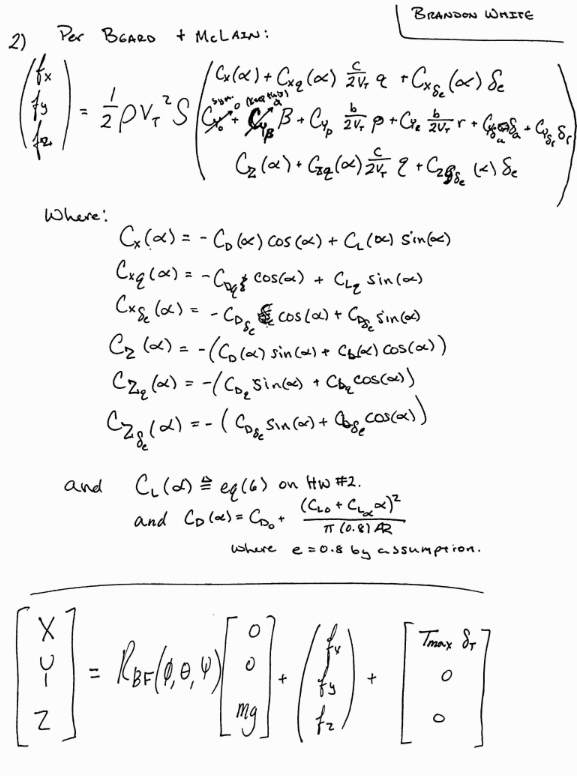 BRANDON WHITE
2) Per BEARD + McLAIN:
(fx fy fz) = 1/2 ρ V_T² S ( C_x(α) + C_xq(α) c/2V_T q + C_xδe(α) δe
C_Y0 + C_Yβ β + C_Yp b/2V_T p + C_Yr b/2V_T r + C_Yδa δa + C_Yδr δr
C_Z(α) + C_Zq(α) c/2V_T q + C_Zδe(α) δe )
Where:
C_x(α) = - C_D(α) cos(α) + C_L(α) sin(α)
C_xq(α) = - C_Dq cos(α) + C_Lq sin(α)
C_xδe(α) = - C_Dδe cos(α) + C_Dδe sin(α)
C_Z(α) = -(C_D(α) sin(α) + C_L(α) cos(α))
C_Zq(α) = -(C_Dq sin(α) + C_Lq cos(α))
C_Zδe(α) = -(C_Dδe sin(α) + C_Lδe cos(α))
and C_L(α) ≙ eq(6) on HW #2.
and C_D(α) = C_D0 + (C_L0 + C_Lα α)² / π (0.8) AR
where e = 0.8 by assumption.
[X Y Z] = R_BF(φ,θ,ψ) [0 0 mg] + (fx fy fz) + [Tmax δ_T 0 0]